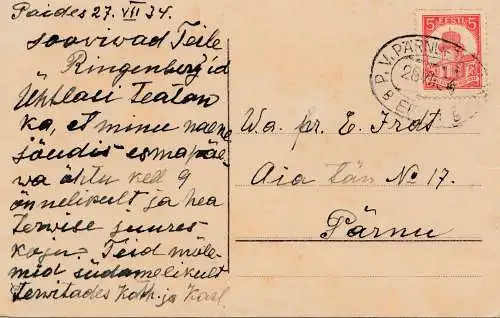 Paides 27. VII 34.
soovivad Teile
Ringenberg'id
Ühtlasi teatan
ka, et minu naene
jõudis esmapäe-
wa õhtu kell 9
õnnelikult ja hea
terwise juures
koju. Teid mõle-
mid südamelikult
terwitades Kath. ja Karl.
5 EESTI 5
P. V. PÄRNU
EESTI
Wa. pr. E. Frdt
Aia tän № 17.
Pärnu